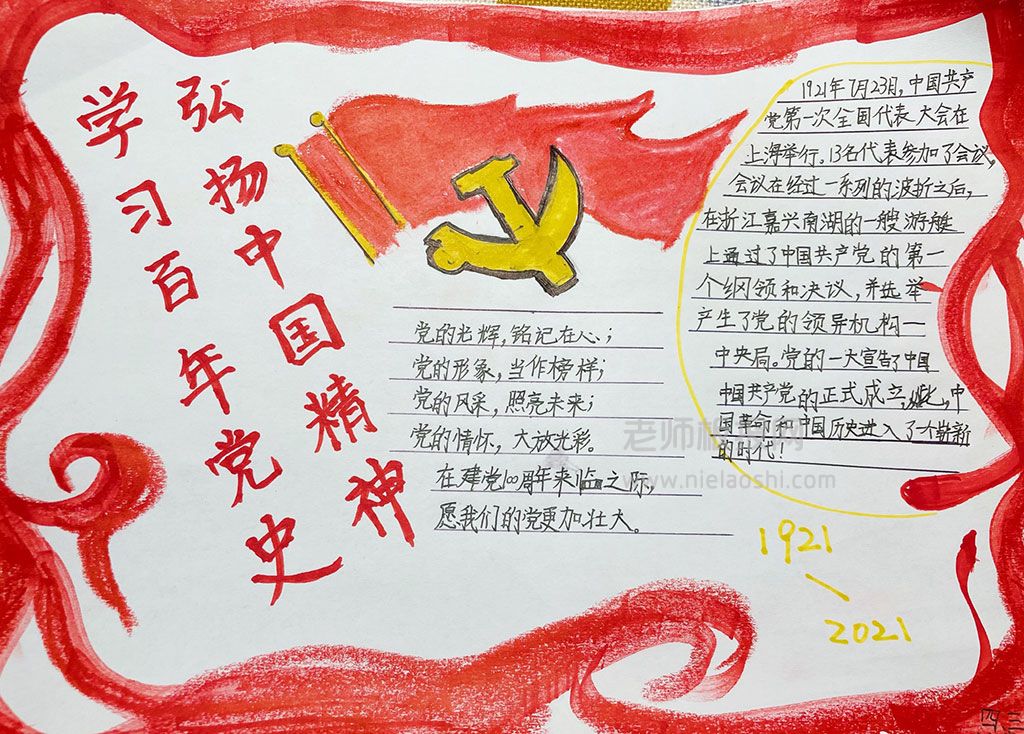 学习百年党史
弘扬中国精神
党的光辉，铭记在心；
党的形象，当作榜样；
党的风采，照亮未来；
党的情怀，大放光彩。
在建党100周年来临之际，
愿我们的党更加壮大。
1921年7月23日，中国共产
党第一次全国代表大会在
上海举行，13名代表参加了会议，
会议在经过一系列的波折之后，
在浙江嘉兴南湖的一艘游艇
上通过了中国共产党的第一
个纲领和决议，并选举
产生了党的领导机构—
中央局。党的一大宣告了中国
中国共产党的正式成立，从此，中
国革命和中国历史进入了一个崭新
的时代！
1921
2021
www.nielaoshi.com
四三